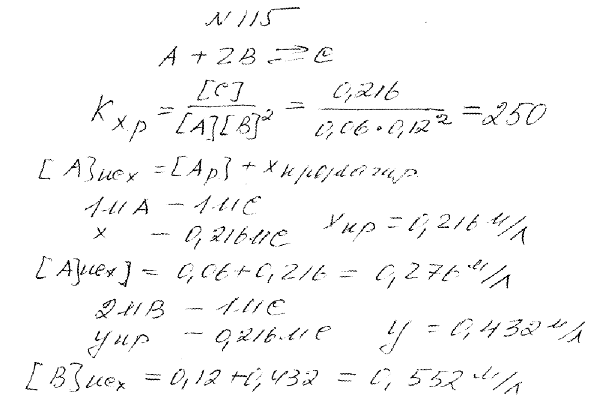 N 115
A + 2B ⇌ C
Kхр = [C] / [A][B]² = 0,216 / 0,06·0,12² = 250
[A]исх = [Ap] + x прореагир
1мA – 1мC
x – 0,216мC xпр = 0,216 м/л
[A]исх] = 0,06+0,216 = 0,276 м/л
2мB – 1мC
yпр – 0,216мC y = 0,432 м/л
[B]исх = 0,12+0,432 = 0,552 м/л